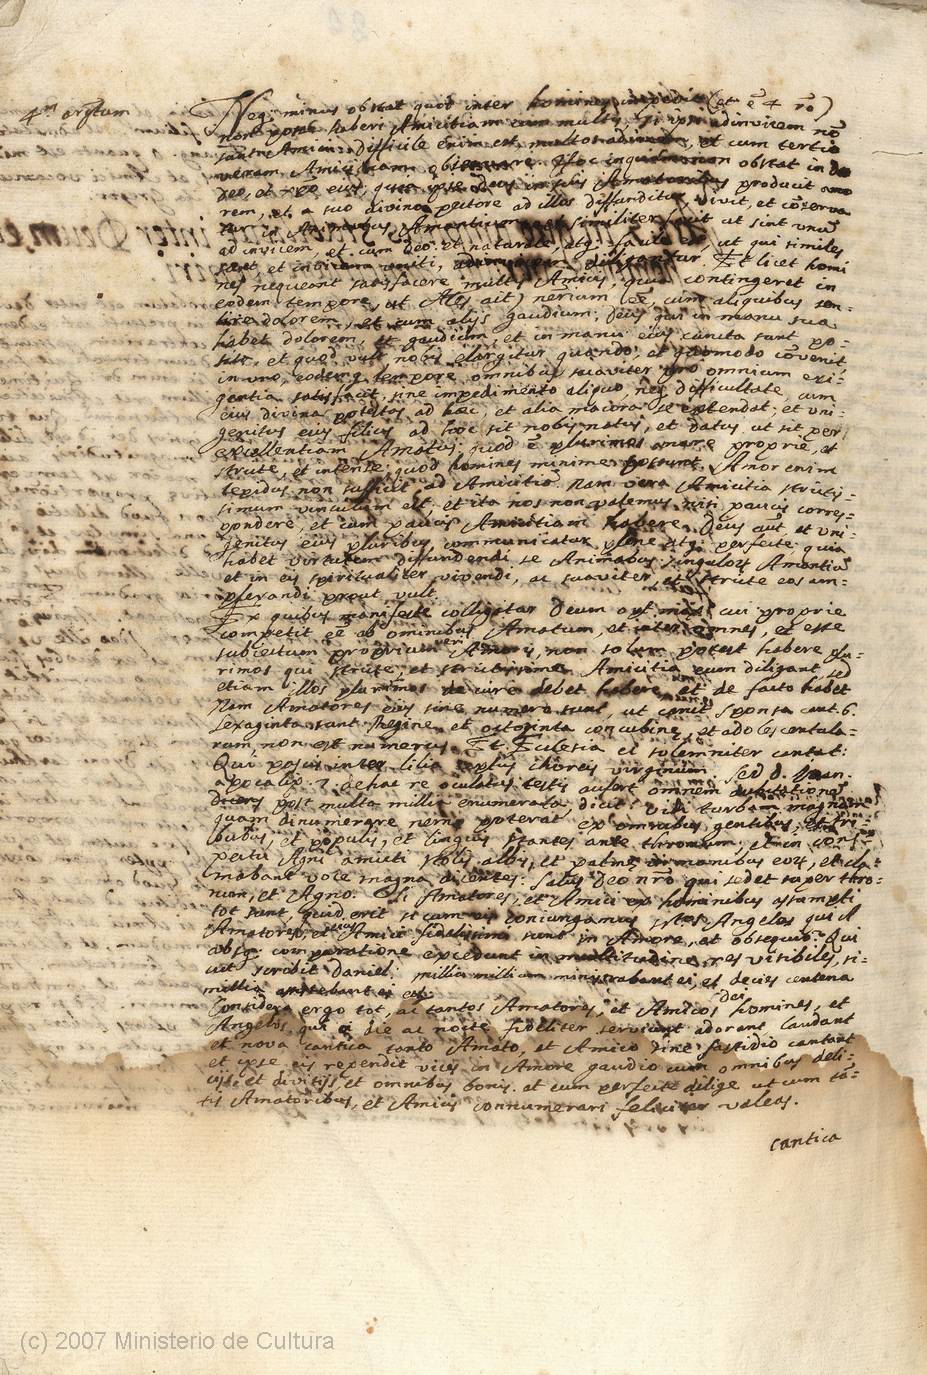 4.m argtum
Neq; minus obstat quod inter homines impedit (et e 4 ro)
non posse haberi Amicitiam cum multis, si ipsi adinvicem no
sunt Amici: difficile enim est multos adinvicem, et cum tertio
veram Amicitiam observare. Hoc inquam non obstat in
Deo, et xpo eius, quia ipse Deus in suis Amatoribus producit amo
rem, et a suo divino pectore ad illos diffunditur, vivit, et coserva
tur in Animabus Amantium et similiter facit ut sint unu
ad invicem, et cum Deo et naturale, atq; facile est, ut qui similes
sunt, et invicem uniti, adinvicem diligantur. Et licet homi
nes nequeant satisfacere multis Amicis, quia contingeret in
eodem tempore, ut Ales ait) necium ee, cum aliquibus sen-
tire dolorem, et cum alijs gaudium; Deus qui in manu sua
habet dolorem, et gaudium, et in manu eius cuncta sunt po-
sita, et quod vult nobis elargitur quando, et quomodo covenit
in uno, eodemq; tempore omnibus suaviter pro omnium exi-
gentia satisfacit, sine impedimento aliquo, neq; difficultate, cum
eius divina potestas ad hæc, et alia maiora se extendat; et uni-
genitus eius filius ad hoc sit nobis natus, et datus, ut sit per
excellentiam Amatus; quod e plurimos amare proprie, et
stricte, et intense; quod homines minime possunt. Amor enim
tepidus non sufficit ad Amicitia. Nam vera Amicitia stricti-
simum vinculum est, et ita nos non valemus nisi paucis corres-
pondere, et cum paucis Amicitiam habere. Deus aut et uni-
genitus eius pluribus communicatur plene atq; perfecte quia
habet virtutem diffundendi se Animabus singulorum Amantiu
et in eis spiritualiter vivendi, ac suaviter, et stricte eos am-
plexandi prout vult.
Ex quibus manifeste colligitur Deum opt. max. cui proprie
competit ee ab omnibus Amatum, et inter omnes, et esse
subiectum proprium veri Amoris, non solum potest habere plu-
rimos qui stricte, et strictissime Amicitia eum diligant, sed
etiam illos plurimos de iure debet habere, et de facto habet
Nam Amatores eius sine numero sunt, ut canit Sponsa cant. 6.
Sexaginta sunt Reginæ et octoginta concubinæ, et adolescentula-
rum non est numerus. Et Eclesia ei solemniter cantat:
Qui pascis inter lilia septus choreis virginum. Sed D. Joan.
apocalip. 7. de hac re oculatus testis aufert omnem dubitatione
dicens post multa millia enumerata dicit: vidi turbam magnam
quam dinumerare nemo poterat ex omnibus gentibus, et tri-
bubus, et populis, et linguis stantes ante thronum, et in cons-
pectu Agni amicti stolis albis, et palmæ in manibus eorum, et cla-
mabant voce magna dicentes: Salus Deo nro qui sedet super thro-
num, et Agno. Si Amatores, et Amici ex hominibus assumpti
tot sunt, quid erit si cum eis coniungamus stos Angelos qui
Amatores, et Amici fidelissimi sunt in Amore, et obsequio? Qui
absq; comparatione excedunt in multitudine res visibiles, si-
cut scribit Daniel: millia millium ministrabant ei, et decies centena
millia assistebant ei
Considera ergo tot, ac tantos Amatores, et Amicos Dei homines, et
Angelos, qui ei die ac nocte fideliter serviunt adorant laudant
et nova cantica tanto Amato, et Amico sine fastidio cantant
et ipse eis rependit vices in Amore gaudio cum omnibus deli-
cijs et divitijs et omnibus bonis. et cum perfecte dilige ut cum ta-
tis Amatoribus, et Amicis connumerari feliciter valeas.
cantica
(c) 2007 Ministerio de Cultura